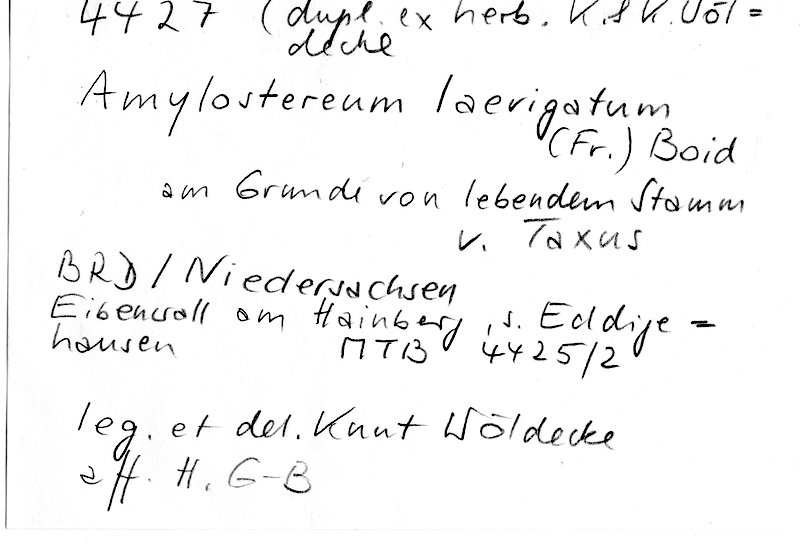 4427 (dupl. ex herb. K. & K. Wöl=
decke
Amylostereum laevigatum
(Fr.) Boid
am Grunde von lebendem Stamm
v. Taxus
BRD / Niedersachsen
Eibenwall am Hainberg, s. Eddige=
hausen MTB 4425/2
leg. et det. Knut Wöldecke
aff. H. G-B